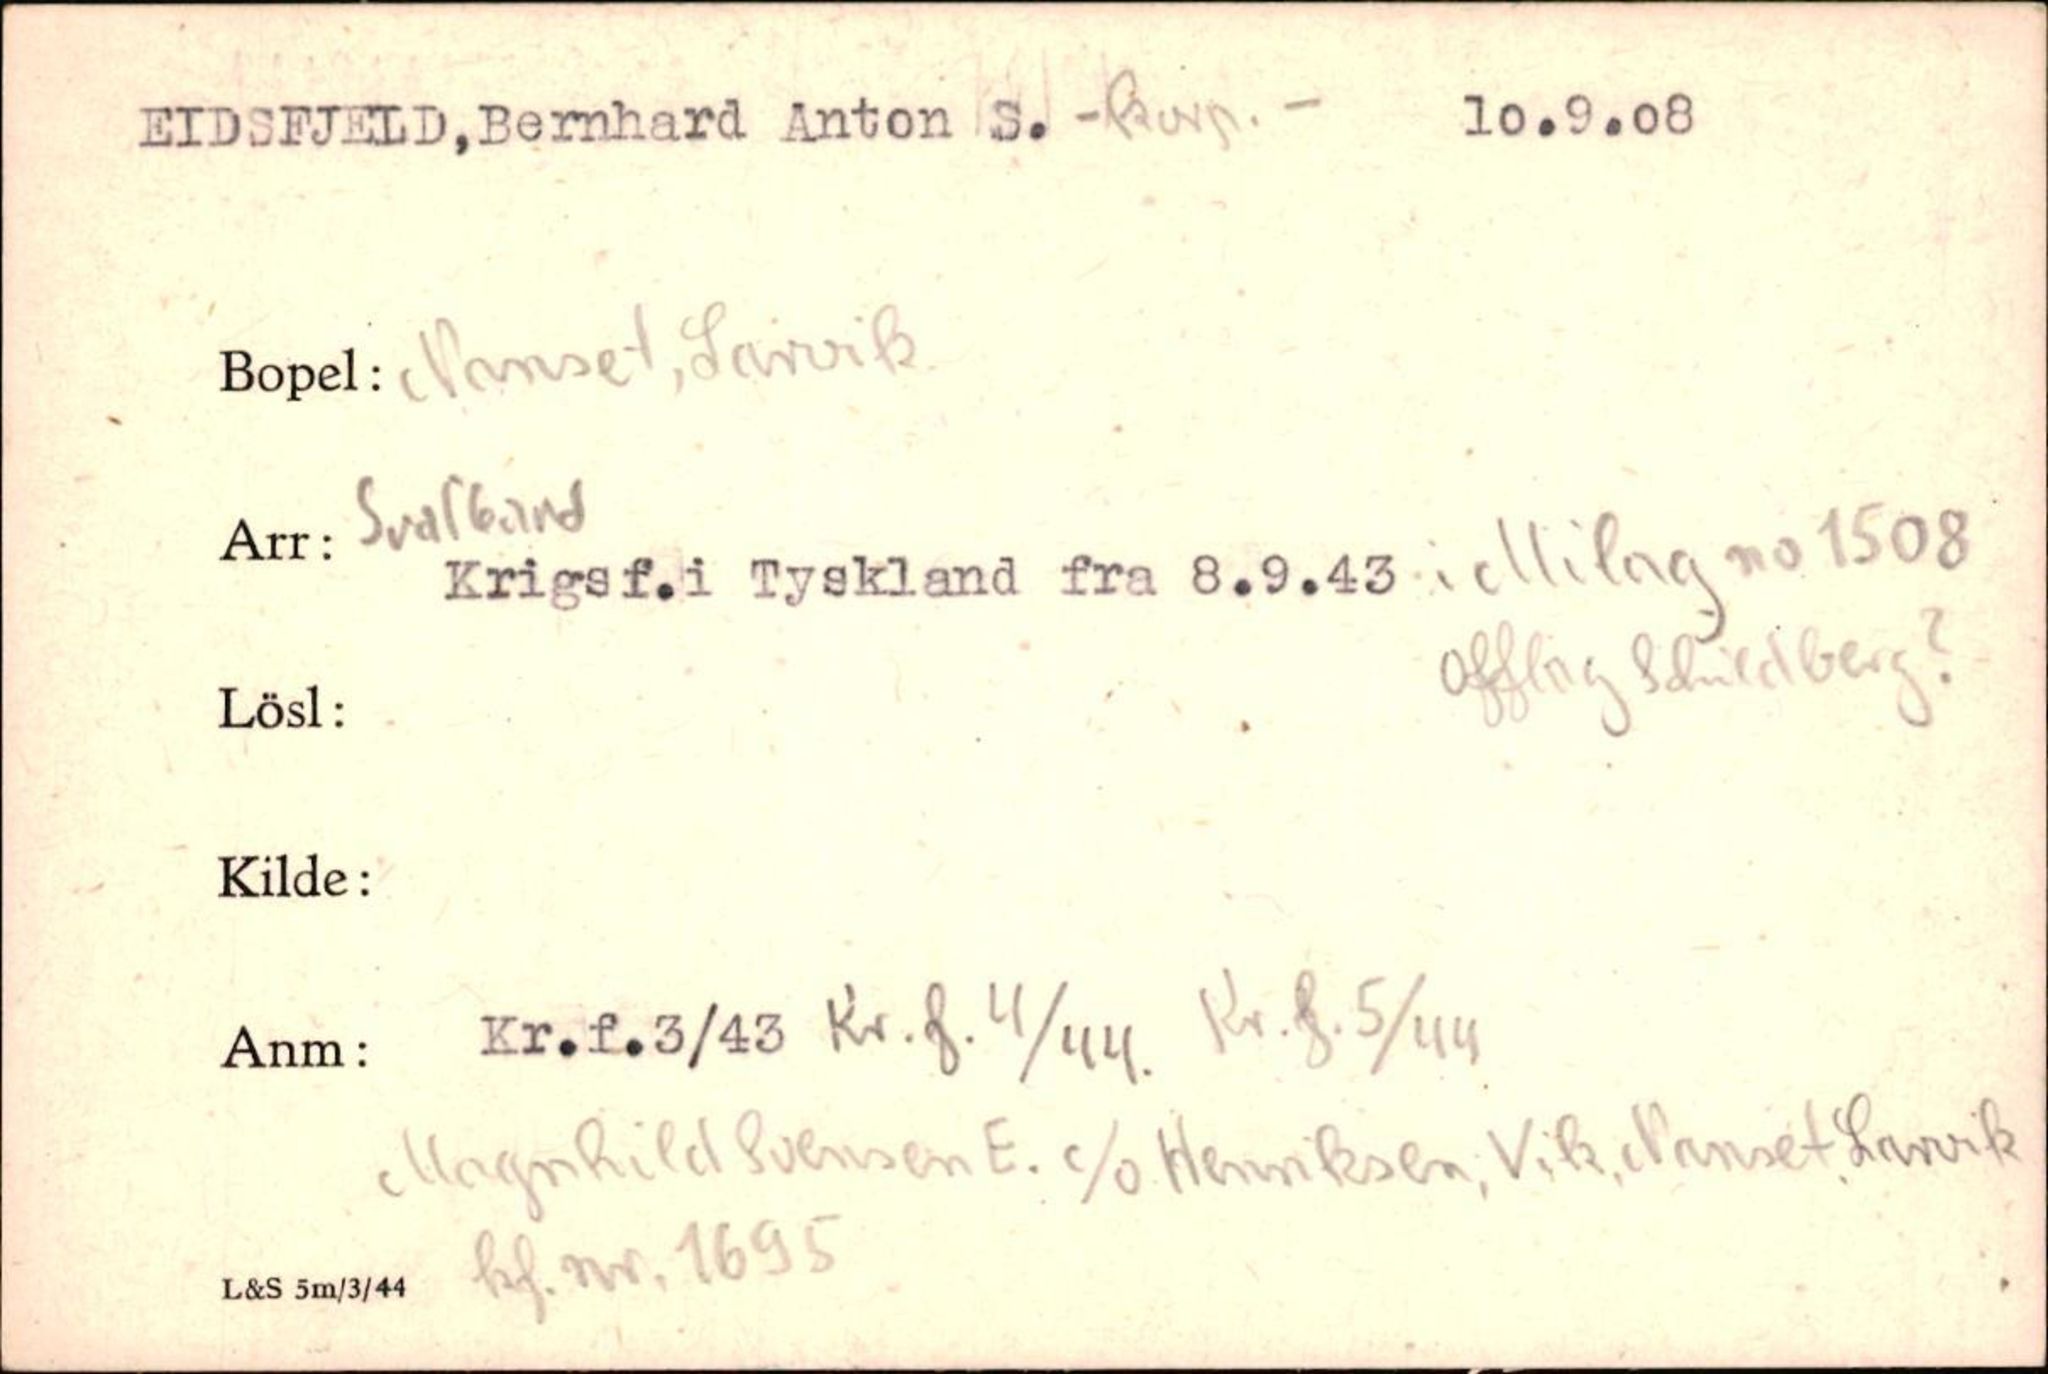 EIDSFJELD, Bernhard Anton S. - Korp. - 10.9.08
Bopel: Nanset, Larvik
Arr: Svalbard
Krigsf.i Tyskland fra 8.9.43 i Milag no 1508
Offlag Schildberg?
Lösl:
Kilde:
Anm: Kr.f.3/43 Kr.f. 4/44. Kr.f. 5/44
Magnhild Svensen E. c/o Henriksen, Vik, Nanset, Larvik
kf. nr. 1695
L&S 5m/3/44